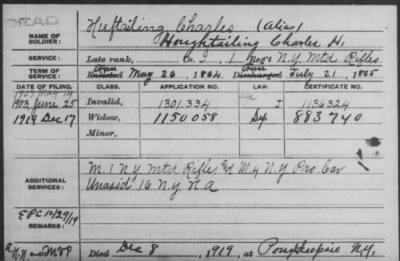 DEAD
Huftailing Charles (Alias)
NAME OF SOLDIER: Houghtailing Charles H.
SERVICE: Late rank, Co. I, 1 Regt N.Y. Mtd Rifles
TERM OF SERVICE: Enlisted May 26, 1864 Discharged July 21, 1865
DATE OF FILING. CLASS. APPLICATION NO. LAW. CERTIFICATE NO.
1903, June 25 Invalid, 1301.334 I 1136324
1919 Dec 17 Widow, 1150058 Dep 883740
Minor,
ADDITIONAL SERVICES: M. 1 N.Y. Mtd Rifles & M. 4 N.Y. Pro. Cav
Unassd 16 N.Y. H.A.
REMARKS:
EPC 12/29/19
Died Dec 8, 1919, at Poughkeepsie N.Y.